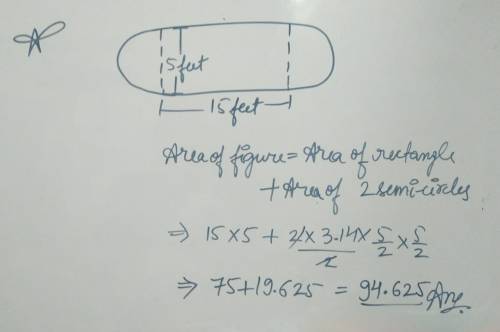 A
5 feet
15 feet
Area of figure = Area of rectangle
+ Area of 2 semi-circles
⇒ 15 × 5 + 2 × 3.14 / 2 × 5/2 × 5/2
⇒ 75 + 19.625 = 94.625 Ans.